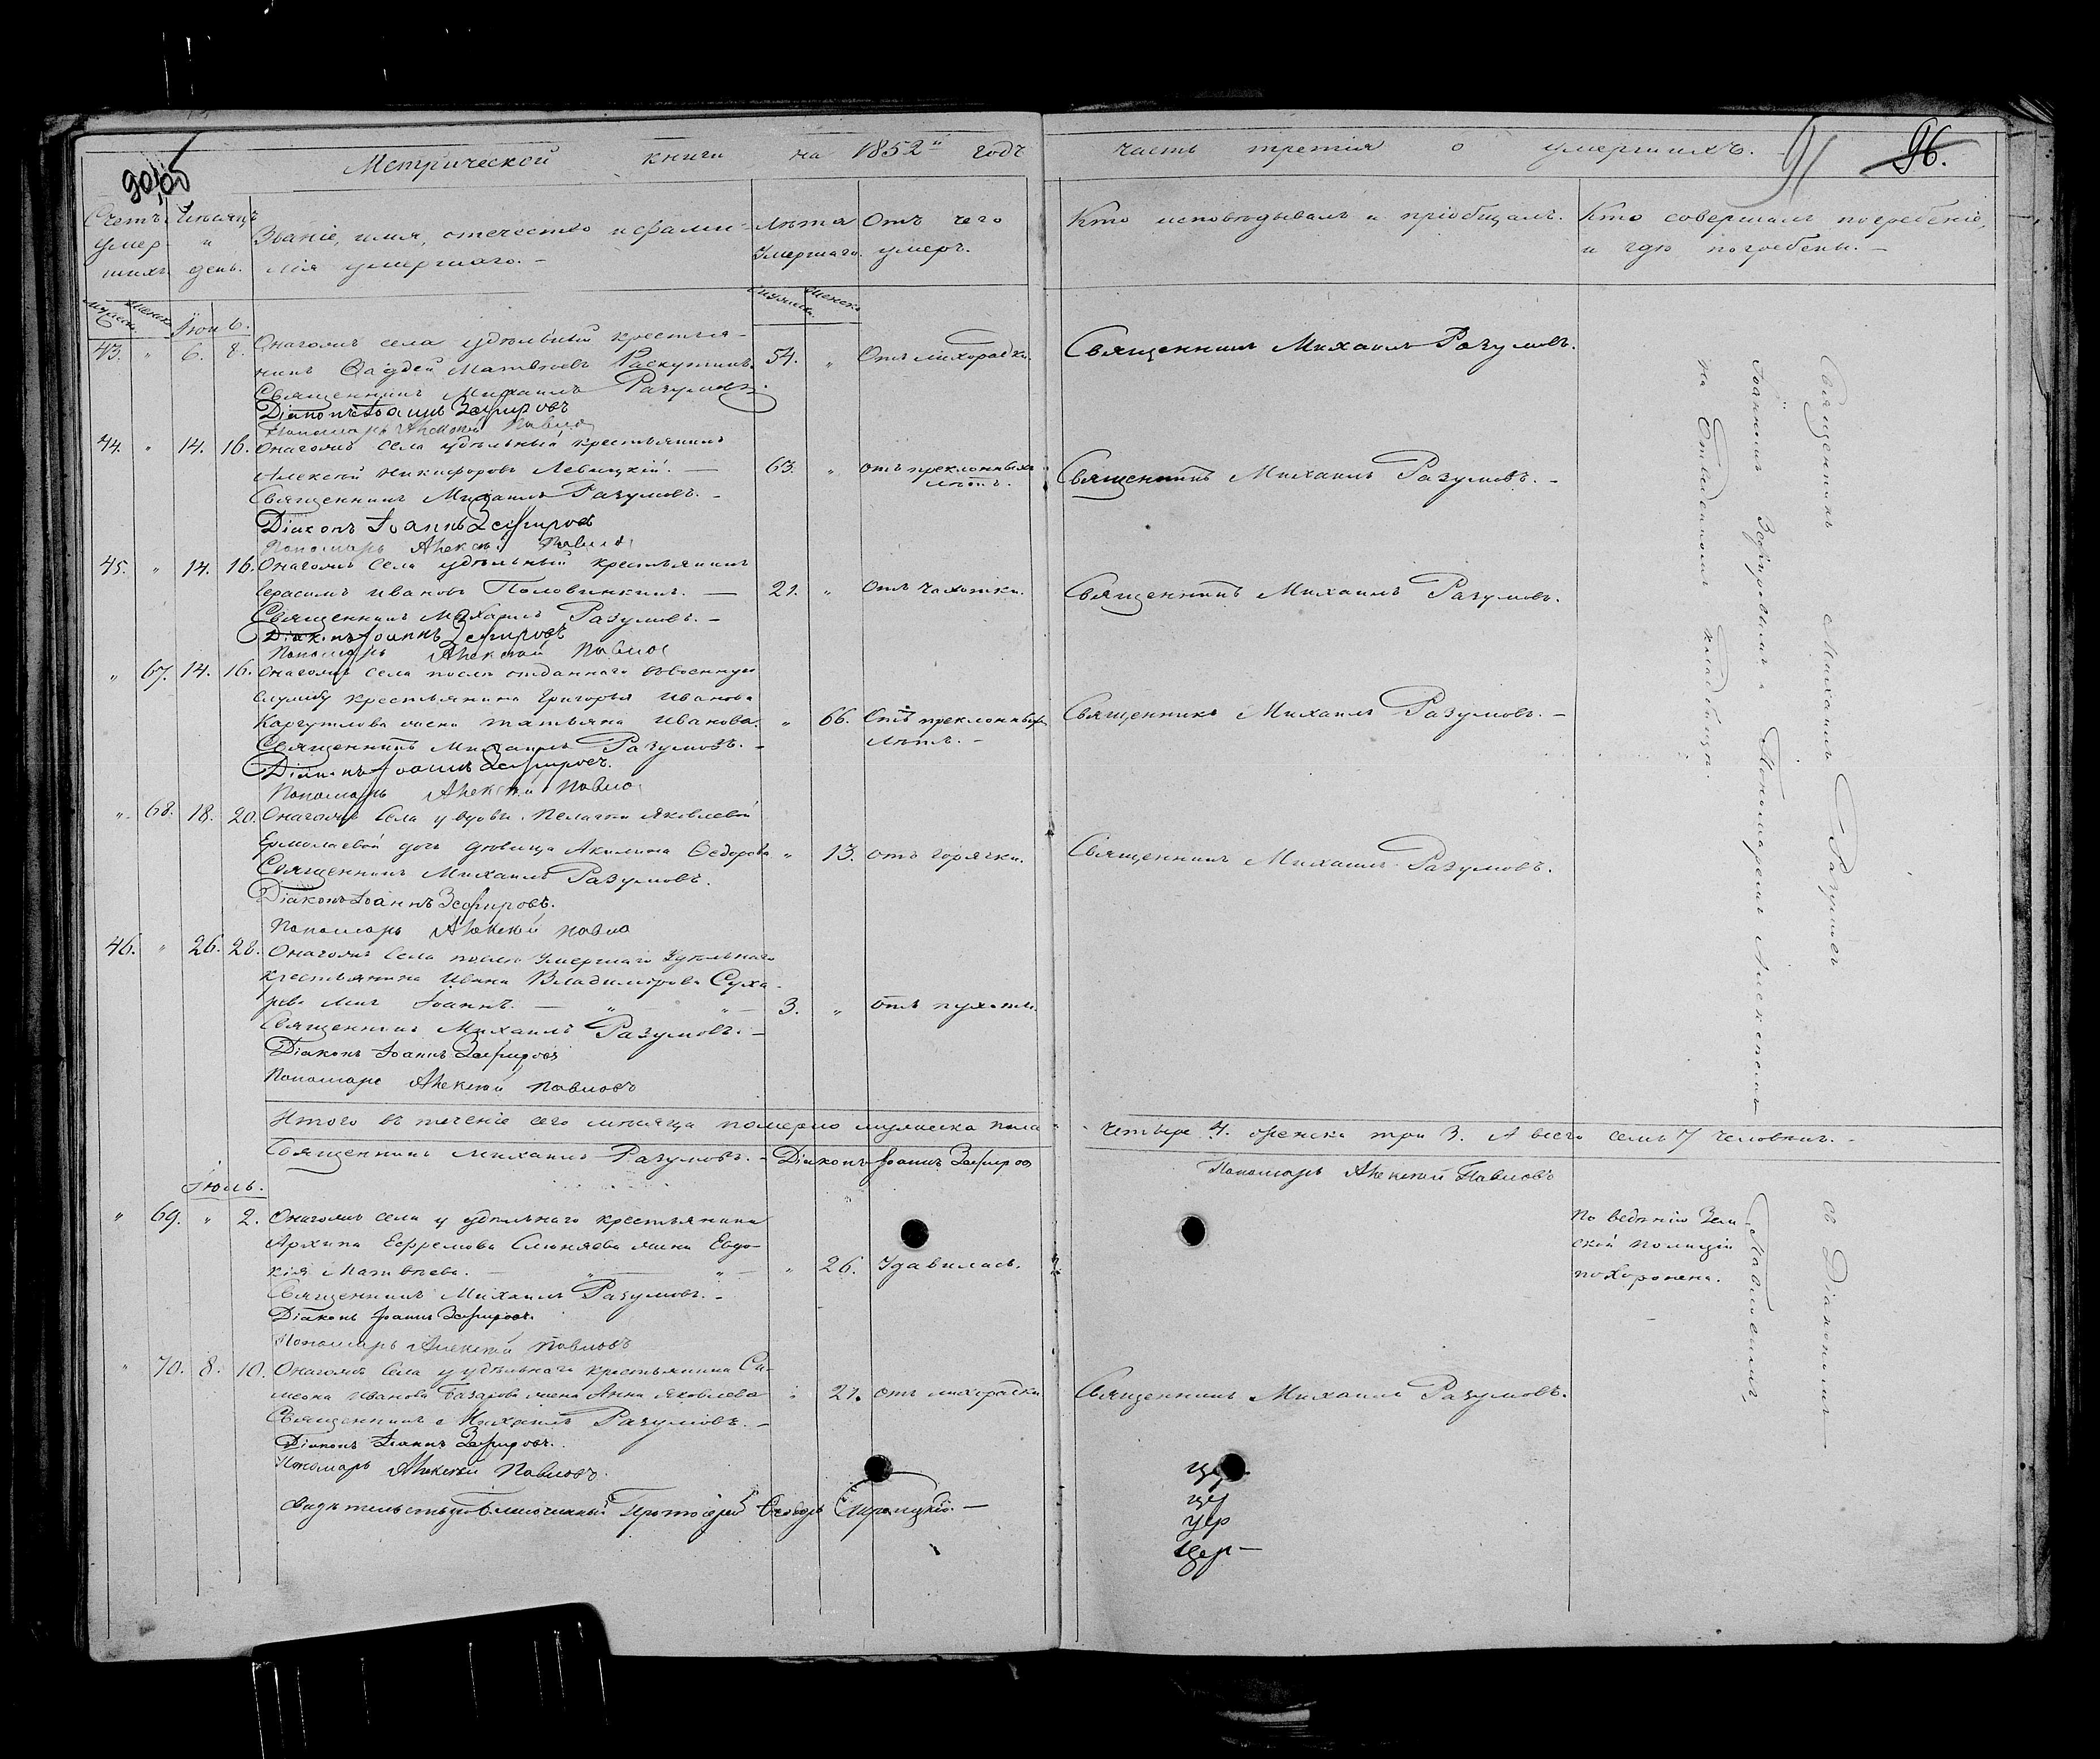 Метрической книги на 1852й годъ часть третія о умершихъ.
91 96.
Счетъ умершихъ. Мѣсяцъ и день. Званіе, имя, отечество и фамилія умершаго. Лѣта умершаго. Отъ чего умеръ. Кто исповѣдывалъ и пріобщалъ. Кто совершалъ погребеніе, и гдѣ погребены.
Мужеска. Женска. Мужеска. Женска.
Іюнь.
43. " 6. 8. Онагожъ села удѣльный крестья-
нинъ Фаддей Матвѣевъ Раскутинъ. 54. " Отъ лихорадки. Священникъ Михаилъ Разумовъ.
Священникъ Михаилъ Разумовъ.
Діаконъ Іоаннъ Зефировъ
Пономарь Алексѣй Павло
44. " 14. 16. Онагожъ села удѣльный крестьянинъ
Алексѣй Никифоровъ Левицкій. 63. " отъ преклонныхъ лѣтъ. Священникъ Михаилъ Разумовъ.
Священникъ Михаилъ Разумовъ.
Діаконъ Іоаннъ Зефировъ
Пономарь Алексѣй Павло
45. " 14. 16. Онагожъ села удѣльный крестьянинъ
Герасимъ Ивановъ Половинкинъ. 21. " отъ чахотки. Священникъ Михаилъ Разумовъ.
Священникъ Михаилъ Разумовъ.
Діаконъ Іоаннъ Зефировъ
Пономарь Алексѣй Павло
" 67. 14. 16. Онагожъ села послѣ отданнаго въ военную
службу крестьянина Григорья Иванова
жена Татьяна Иванова. " 66. Отъ преклонныхъ лѣтъ. Священникъ Михаилъ Разумовъ.
Священникъ Михаилъ Разумовъ.
Діаконъ Іоаннъ Зефировъ.
Пономарь Алексѣй Павло
" 68. 18. 20. Онагожъ села у вдовы Пелагіи Яковлевой
Ермолаевой дочь дѣвица Акилина Ѳедорова " 13. отъ горячки. Священникъ Михаилъ Разумовъ.
Священникъ Михаилъ Разумовъ.
Діаконъ Іоаннъ Зефировъ.
Пономарь Алексѣй Павло
46. " 26. 28. Онагожъ села послѣ умершаго удѣльнаго
крестьянина Ивана Владимірова Суха-
рева Іоаннъ. 3. " отъ
Священникъ Михаилъ Разумовъ.
Діаконъ Іоаннъ Зефировъ
Пономарь Алексѣй Павловъ
Итого въ теченіе сего мѣсяца померло мужеска пола четыре 4. женска три 3. А всего семь 7 человѣкъ.
Священникъ Михаилъ Разумовъ. Діаконъ Іоаннъ Зефировъ Пономарь Алексѣй Павловъ
Іюль.
" 69. " 2. Онагожъ села у удѣльнаго крестьянина
Архипа Ефремова жена Евдо-
кія Матвѣева. " 26. Удавилась. По веденію Зем-
ской полиціи
похоронена.
Священникъ Михаилъ Разумовъ.
Діаконъ Іоаннъ Зефировъ.
Пономарь Алексѣй Павловъ
" 70. 8. 10. Онагожъ села у удѣльнаго крестьянина Си-
меона Иванова Базарова жена Анна Яковлева " 21. отъ лихорадки Священникъ Михаилъ Разумовъ.
Священникъ Михаилъ Разумовъ.
Діаконъ Іоаннъ Зефировъ.
Пономарь Алексѣй Павловъ.
Благочинный Протоіерей Ѳеодоръ
цер
Цер
Священникъ Михаилъ Разумовъ съ Діакономъ
Іоанномъ Зефировымъ и Пономаремъ Алексѣемъ Павловымъ,
на Отведенномъ кладбищѣ.